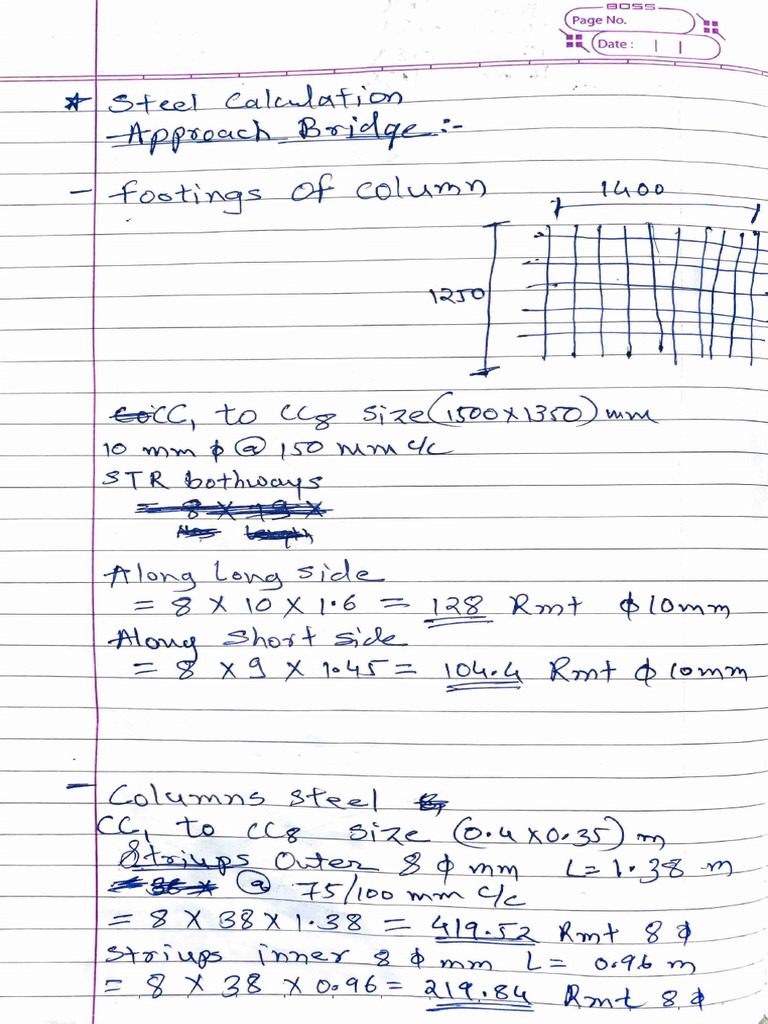 BOSS
Page No.
Date :
* Steel Calculation
Approach Bridge :-
- footings of column
1400
1250
CC1 to CC8 size (1500 x 1350) mm
10 mm ϕ @ 150 mm c/c
STR bothways
= 8 x 19 x
Nos Length
Along Long side
= 8 x 10 x 1.6 = 128 Rmt ϕ 10mm
Along Short side
= 8 x 9 x 1.45 = 104.4 Rmt ϕ 10mm
- Columns steel
CC1 to CC8 size (0.4 x 0.35) m
Striups Outer 8 ϕ mm L= 1.38 m
@ 75/100 mm c/c
= 8 x 38 x 1.38 = 419.52 Rmt 8 ϕ
Striups inner 8 ϕ mm L= 0.96 m
= 8 x 38 x 0.96 = 219.84 Rmt 8 ϕ